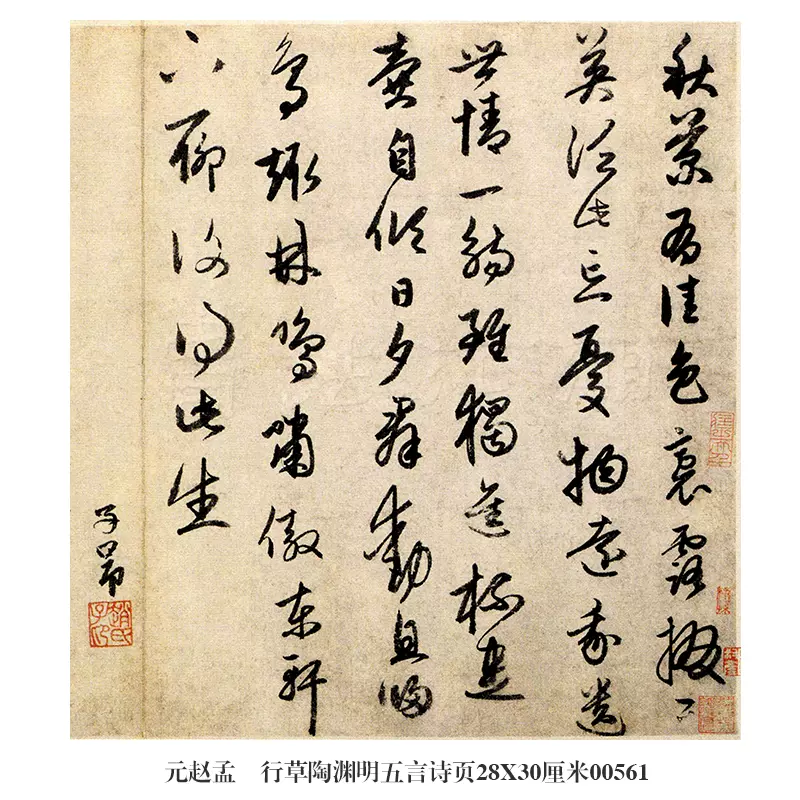 秋菊有佳色裛露掇其
英泛此忘憂物遠我遺
世情一觴雖獨進杯盡
壺自傾日夕羣動息歸
鳥趨林鳴嘯傲東軒
下聊復得此生
子昂
趙氏子昂
元赵孟　行草陶渊明五言诗页28X30厘米00561